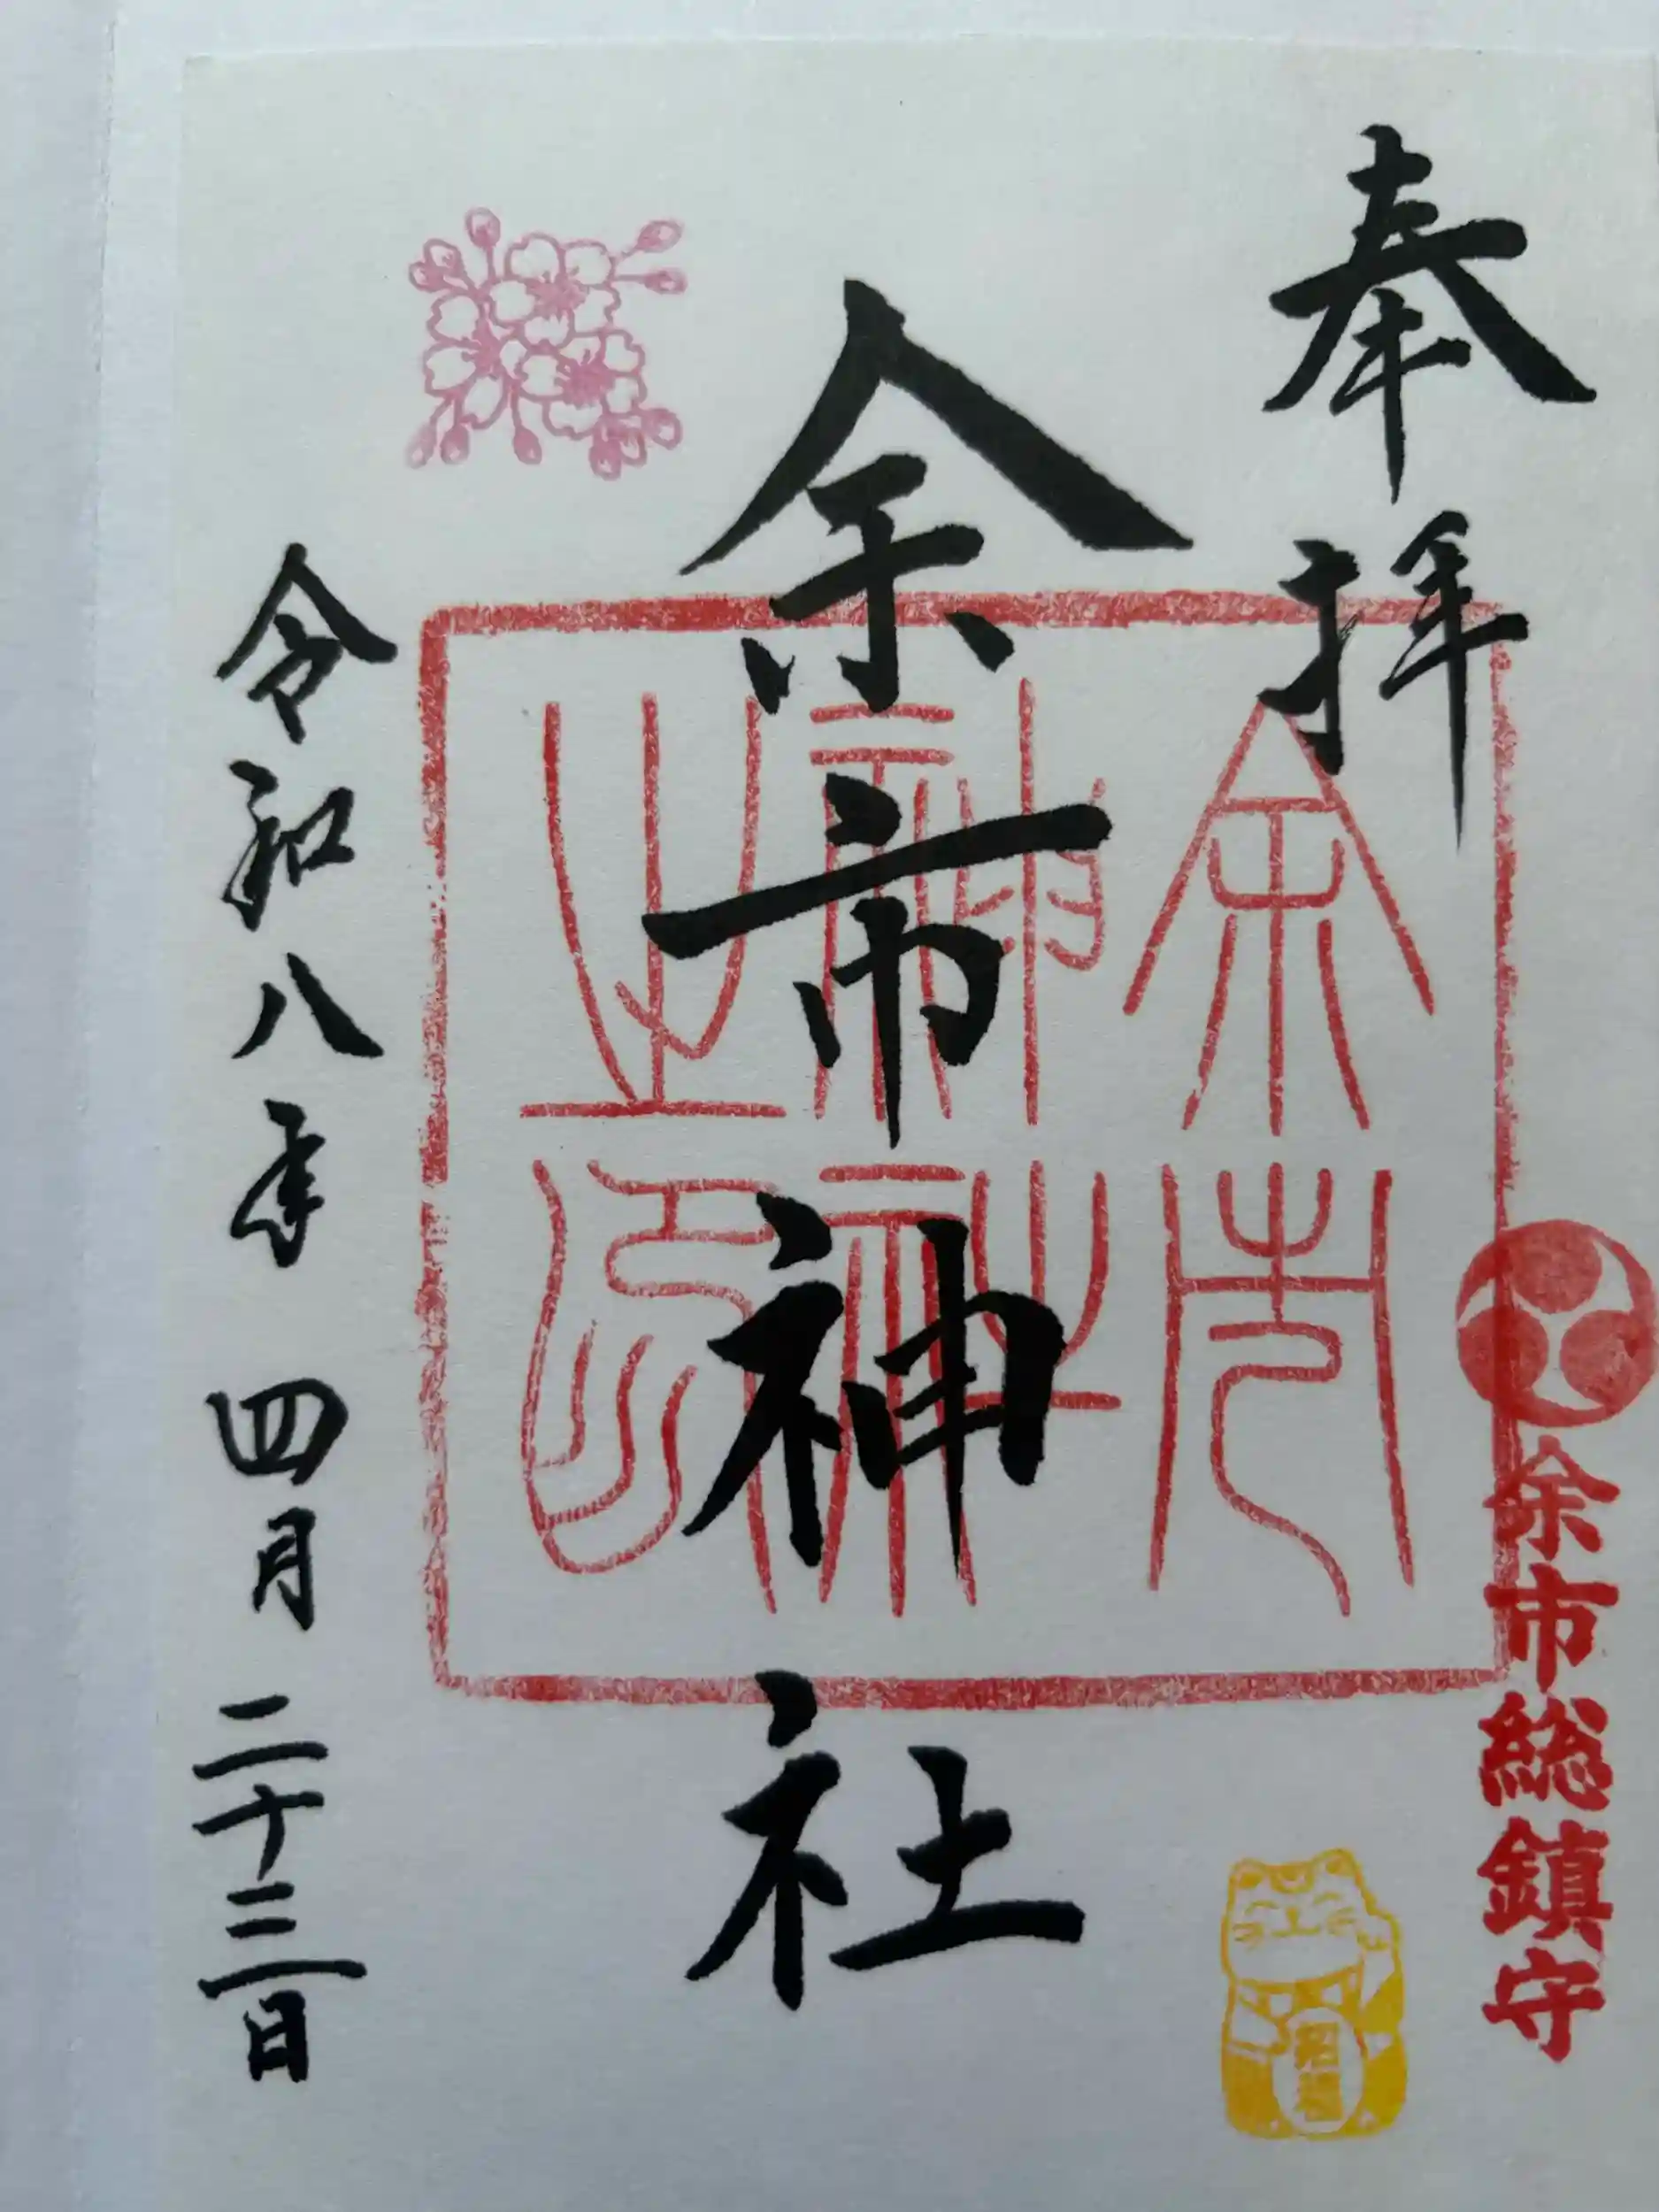 奉拝
余市総鎮守
余市神社
余市神社之印
令和八年四月二十三日
招福